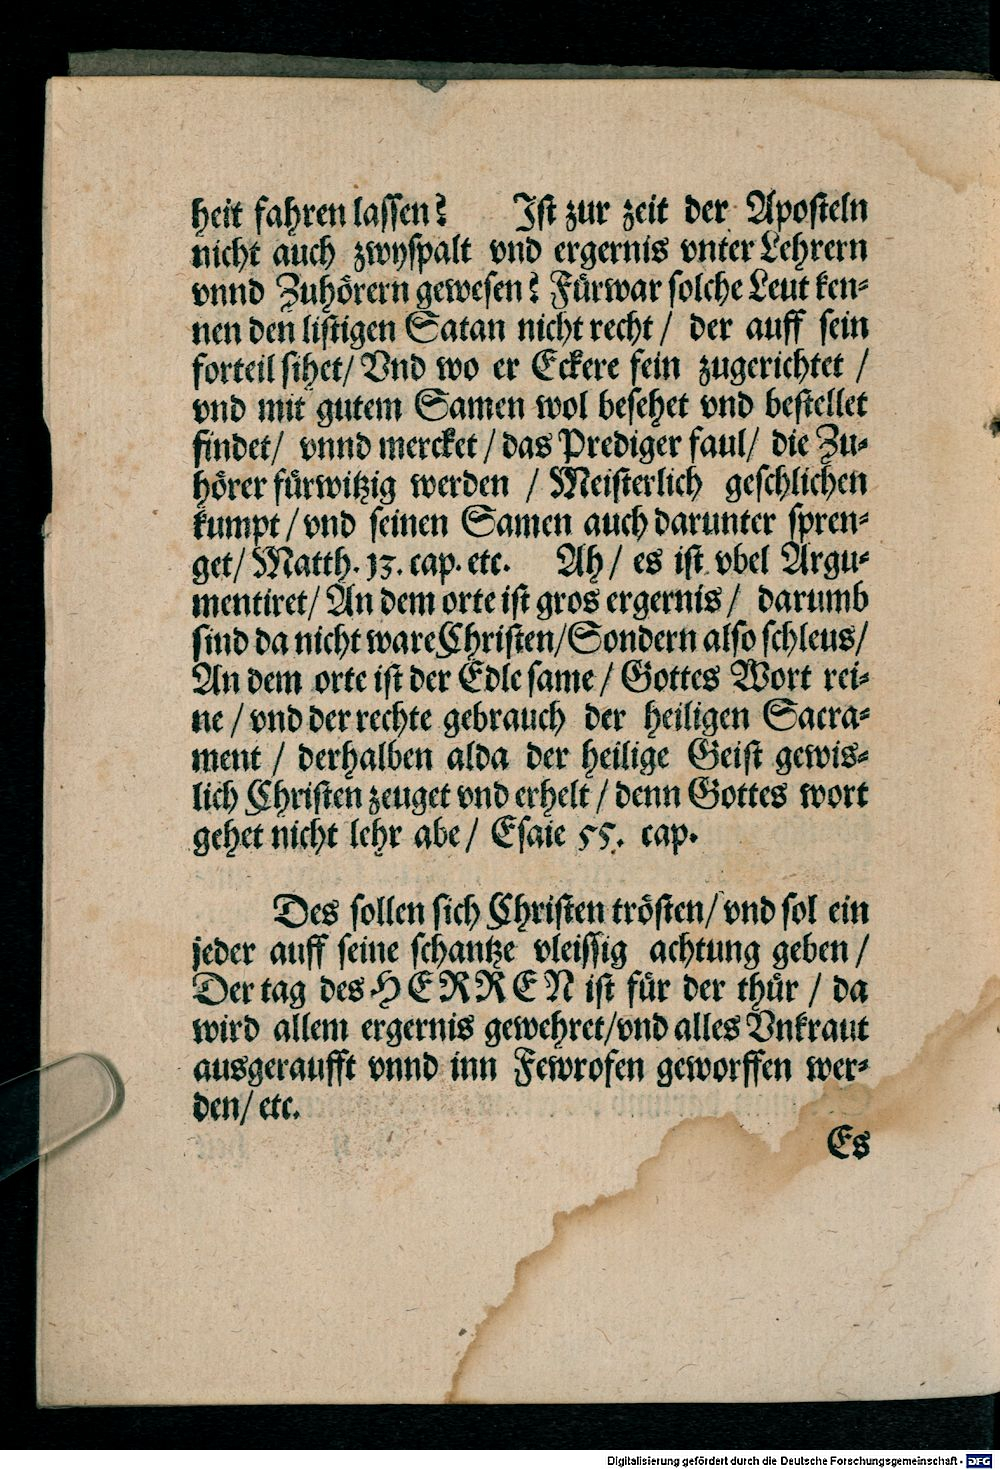 heit fahren lassen? Ist zur zeit der Aposteln
nicht auch zwyspalt vnd ergernis vnter Lehrern
vnnd Zuhörern gewesen? Fürwar solche Leut ken-
nen den listigen Satan nicht recht / der auff sein
forteil sihet/ Vnd wo er Eckere fein zugerichtet /
vnd mit gutem Samen wol besehet vnd bestellet
findet/ vnnd mercket / das Prediger faul/ die Zu-
hörer fürwitzig werden / Meisterlich geschlichen
kumpt / vnd seinen Samen auch darunter spren-
get/ Matth. 13. cap. etc. Ah / es ist vbel Argu-
mentiret/ An dem orte ist gros ergernis / darumb
sind da nicht ware Christen/ Sondern also schleus/
An dem orte ist der Edle same / Gottes Wort rei-
ne / vnd der rechte gebrauch der heiligen Sacra-
ment / derhalben alda der heilige Geist gewis-
lich Christen zeuget vnd erhelt / denn Gottes wort
gehet nicht lehr abe / Esaie 55. cap.
Des sollen sich Christen trösten/ vnd sol ein
jeder auff seine schantze vleissig achtung geben /
Der tag des HERREN ist für der thür / da
wird allem ergernis gewehret/vnd alles Vnkraut
ausgeraufft vnnd inn Fewrofen geworffen wer-
den/ etc.
Es
Digitalisierung gefördert durch die Deutsche Forschungsgemeinschaft - DFG